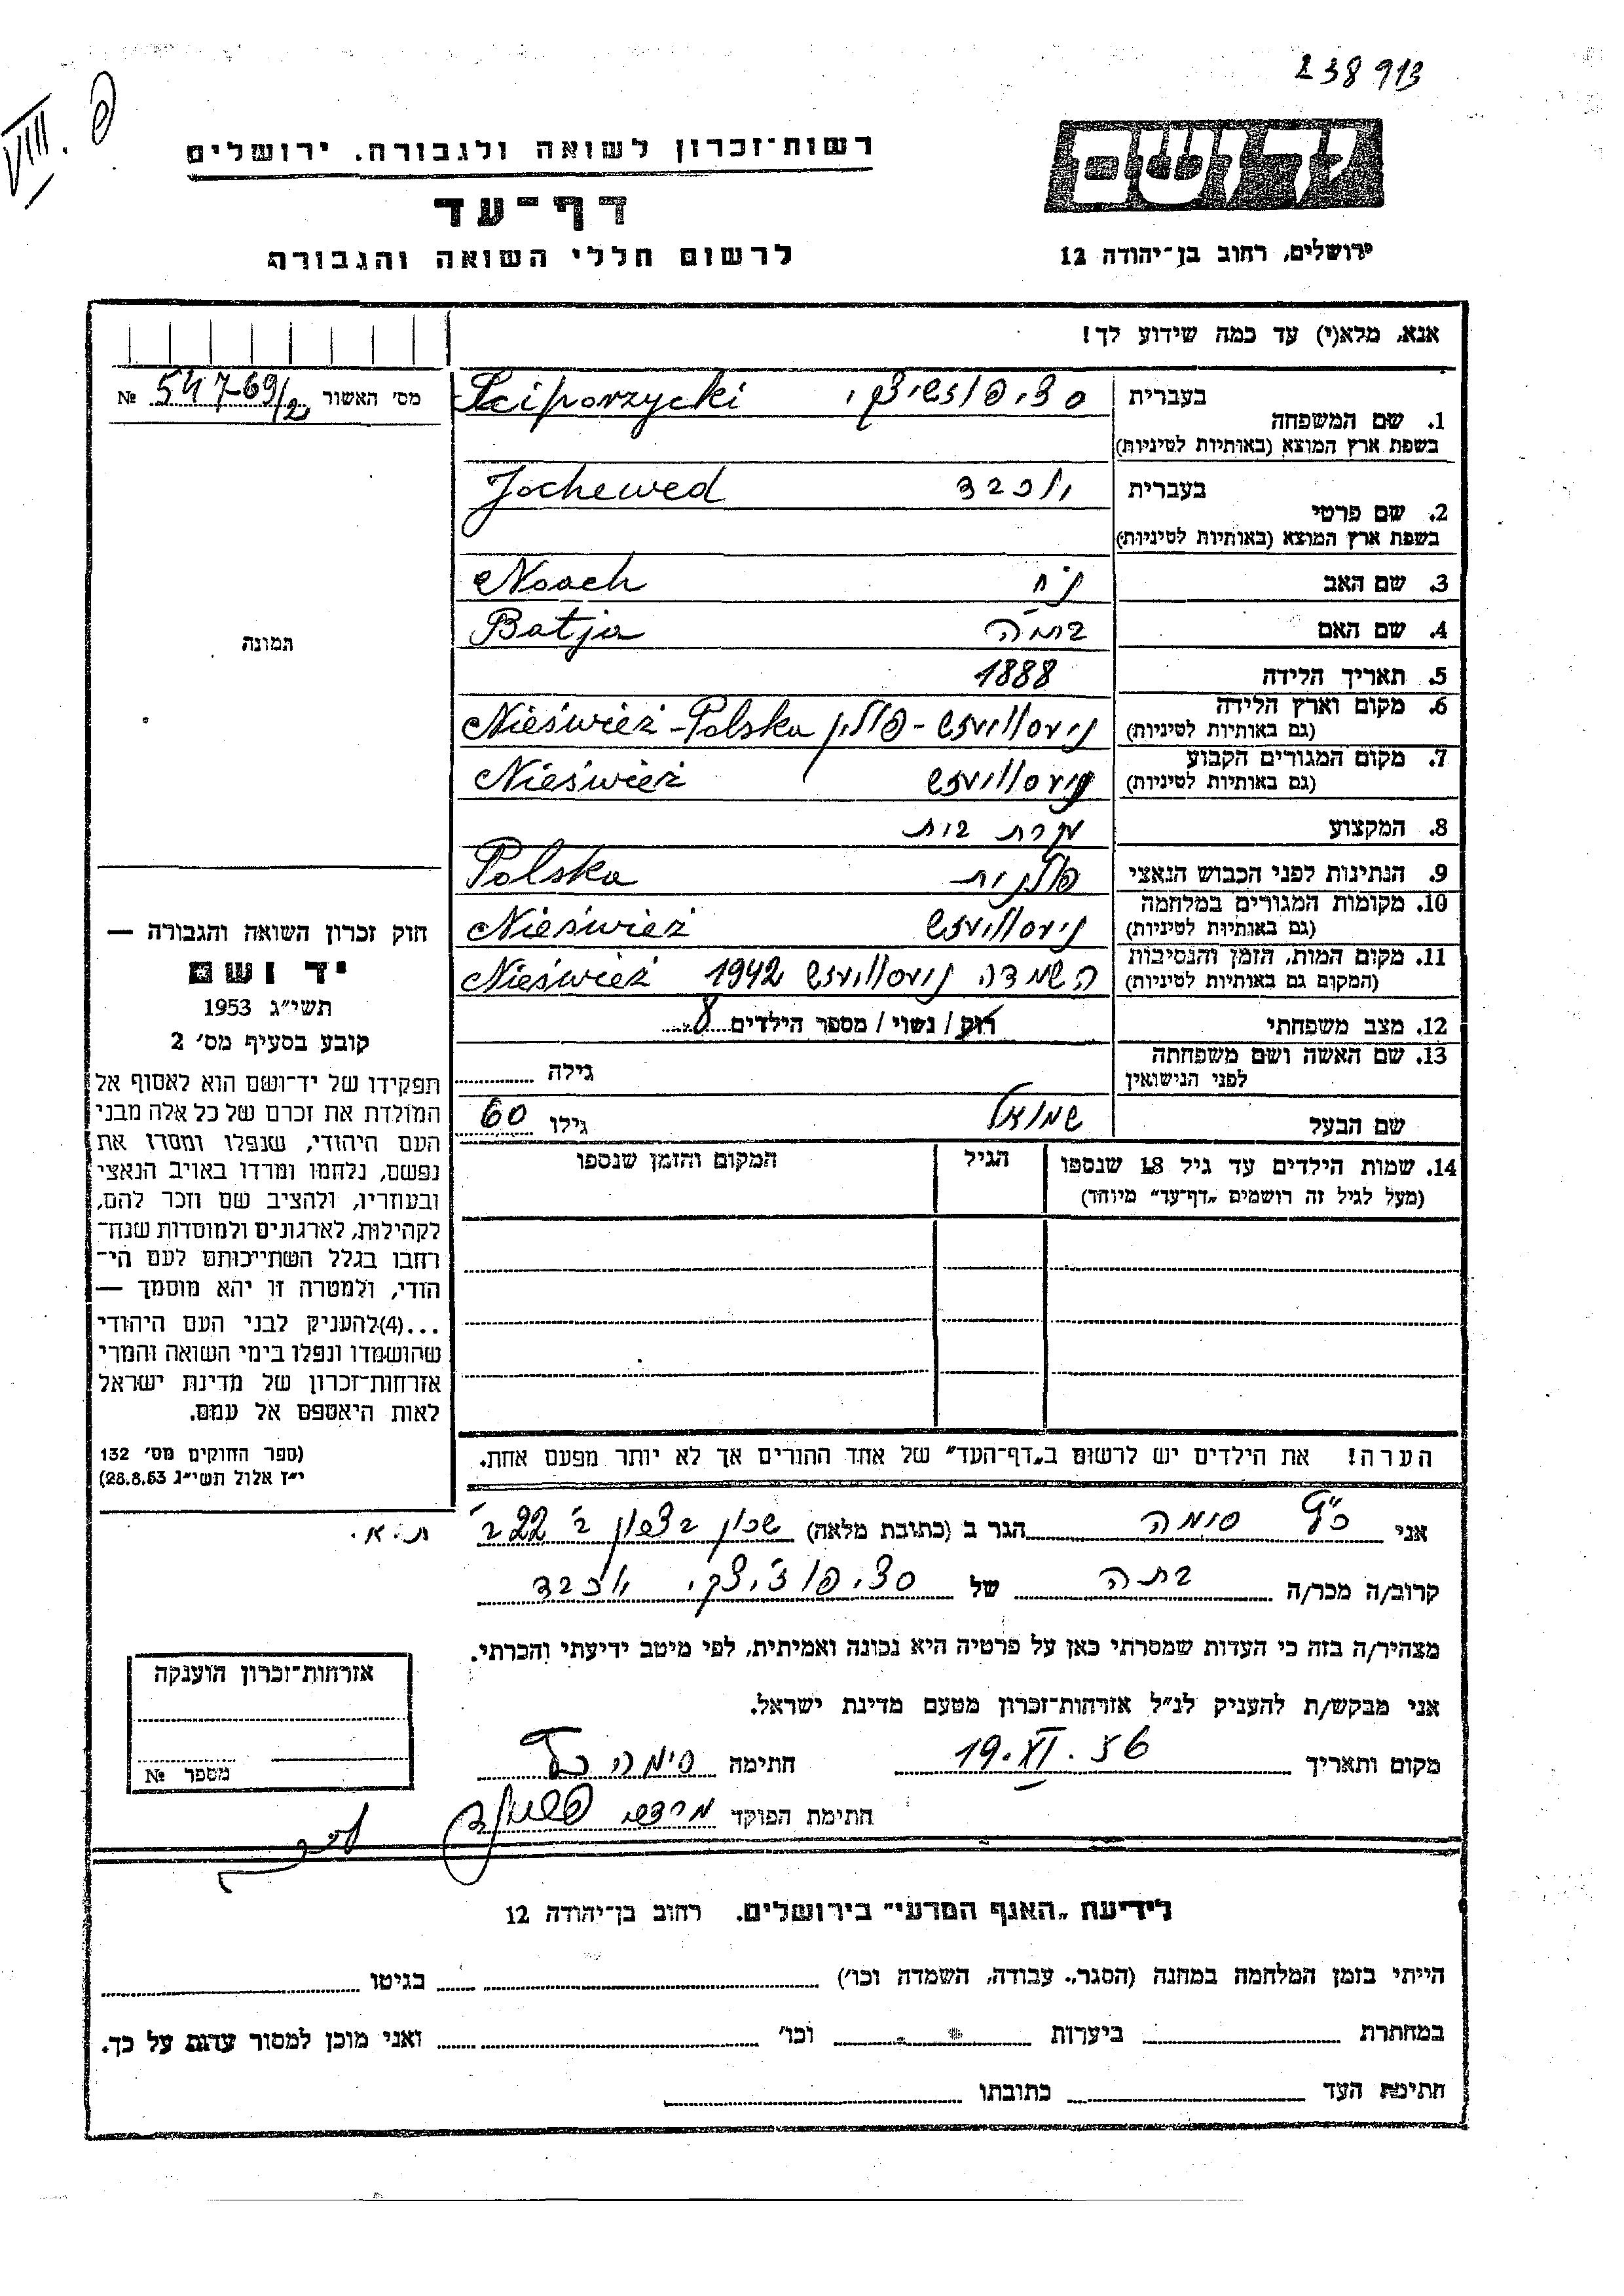 238913
VIII. 9
יד ושם
ירושלים, רחוב בן־יהודה 12
רשות־זכרון לשואה ולגבורה, ירושלים
דף־עד
לרשום חללי השואה והגבורה
אנא, מלא(י) עד כמה שידוע לך!
מס' האשור № 547-69/2
1. שם המשפחה בעברית
Sciporzycki
בשפת ארץ המוצא (באותיות לטיניות)
2. שם פרטי בעברית יוכבד
Jochewed
בשפת ארץ המוצא (באותיות לטיניות)
3. שם האב נח Noach
4. שם האם בתיה Batja
5. תאריך הלידה 1888
6. מקום וארץ הלידה ניסוויזש - פולין Nieśwież - Polska
(גם באותיות לטיניות)
7. מקום המגורים הקבוע ניסוויזש Nieśwież
(גם באותיות לטיניות)
8. המקצוע עקרת בית
9. הנתינות לפני הכבוש הנאצי פולנית Polska
10. מקומות המגורים במלחמה ניסוויזש Nieśwież
(גם באותיות לטיניות)
11. מקום המות, הזמן והנסיבות השמדה ניסוויזש 1942 Nieśwież
(המקום גם באותיות לטיניות)
12. מצב משפחתי רוק / נשוי / מספר הילדים 8
13. שם האשה ושם משפחתה לפני הנישואין גילה
שם הבעל שמואל גילו 60
14. שמות הילדים עד גיל 18 שנספו הגיל המקום והזמן שנספו
(מעל לגיל זה רושמים „דף־עד" מיוחד)
הערה! את הילדים יש לרשום ב„דף־העד" של אחד ההורים אך לא יותר מפעם אחת.
תמונה
חוק זכרון השואה והגבורה —
יד ושם
תשי״ג 1953
קובע בסעיף מס' 2
תפקידו של יד־ושם הוא לאסוף אל
המולדת את זכרם של כל אלה מבני
העם היהודי, שנפלו ומסרו את
נפשם, נלחמו ומרדו באויב הנאצי
ובעוזריו, ולהציב שם וזכר להם,
לקהילות, לארגונים ולמוסדות שנח־
רחבו בגלל השתייכותם לעם הי־
הודי, ולמטרה זו יהא מוסמך —
...(4)להעניק לבני העם היהודי
שהושמדו ונפלו בימי השואה והמרי
אזרחות־זכרון של מדינת ישראל
לאות היאספם אל עמם.
(ספר החוקים מס' 132
י״ז אלול תשי״ג 28.8.53)
אני כץ סימה הגר ב (כתובת מלאה) שכון ב' 22 ב' ת.א.
קרוב/ה מכר/ה בתה של יוכבד
מצהיר/ה בזה כי העדות שמסרתי כאן על פרטיה היא נכונה ואמיתית, לפי מיטב ידיעתי והכרתי.
אני מבקש/ת להעניק לנ״ל אזרחות־זכרון מטעם מדינת ישראל.
מקום ותאריך 19.XI.56 חתימה סימה כץ
חתימת הפוקד
אזרחות־זכרון הוענקה
מספר №
לידיעת „האגף המדעי" בירושלים. רחוב בן־יהודה 12
הייתי בזמן המלחמה במחנה (הסגר, עבודה, השמדה וכו') בגיטו
במחתרת ביערות וכו' ואני מוכן למסור עדות על כך.
חתימת העד כתובתו